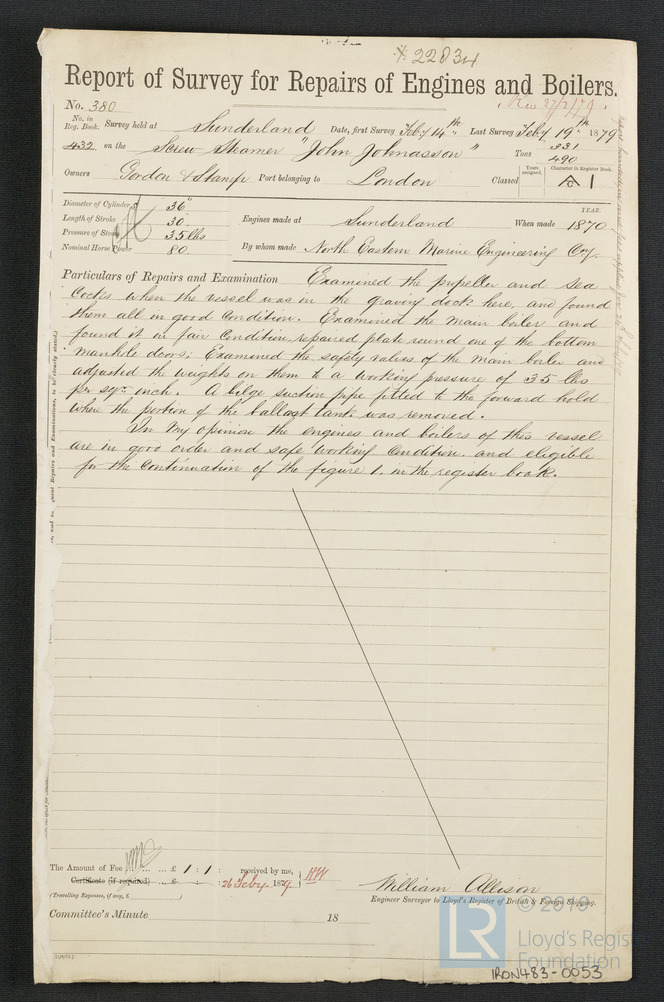 22834
Report of Survey for Repairs of Engines and Boilers.
No. 380
Rec 27/2/79
No. in Reg. Book. Survey held at Sunderland Date, first Survey Feby 14th Last Survey Feby 19th 1879
432 on the Screw Steamer "John Johnasson" Tons 331 490
Owners Gordon & Stamp Port belonging to London Classed Years assigned. Character in Register Book. A 1
Diameter of Cylinders 36"
Length of Stroke 30"
Pressure of Steam 35 lbs
Nominal Horse Power 80
Engines made at Sunderland When made YEAR. 1870
By whom made North Eastern Marine Engineering Coy.
Particulars of Repairs and Examination Examined the propeller and sea
cocks when the vessel was in the graving dock here, and found
them all in good condition. Examined the main boiler and
found it in fair condition, repaired plate round one of the bottom
manhole doors; Examined the safety valves of the main boiler and
adjusted the weights on them to a working pressure of 35 lbs
per sqr inch. A bilge suction pipe fitted to the forward hold
where the portion of the ballast tank was removed.
In my opinion the engines and boilers of this vessel
are in good order and safe working condition, and eligible
for the continuation of the figure 1. in the register book.
The Amount of Fee ... £ 1 : 1 : received by me,
Certificate (if required) ... £ : : 26 Feby 1879
(Travelling Expenses, if any, £ )
William Allison
Engineer Surveyor to Lloyd's Register of British & Foreign Shipping.
Committee's Minute 18
LR © 2019
Lloyd's Regist
Foundation
IRON483-0053